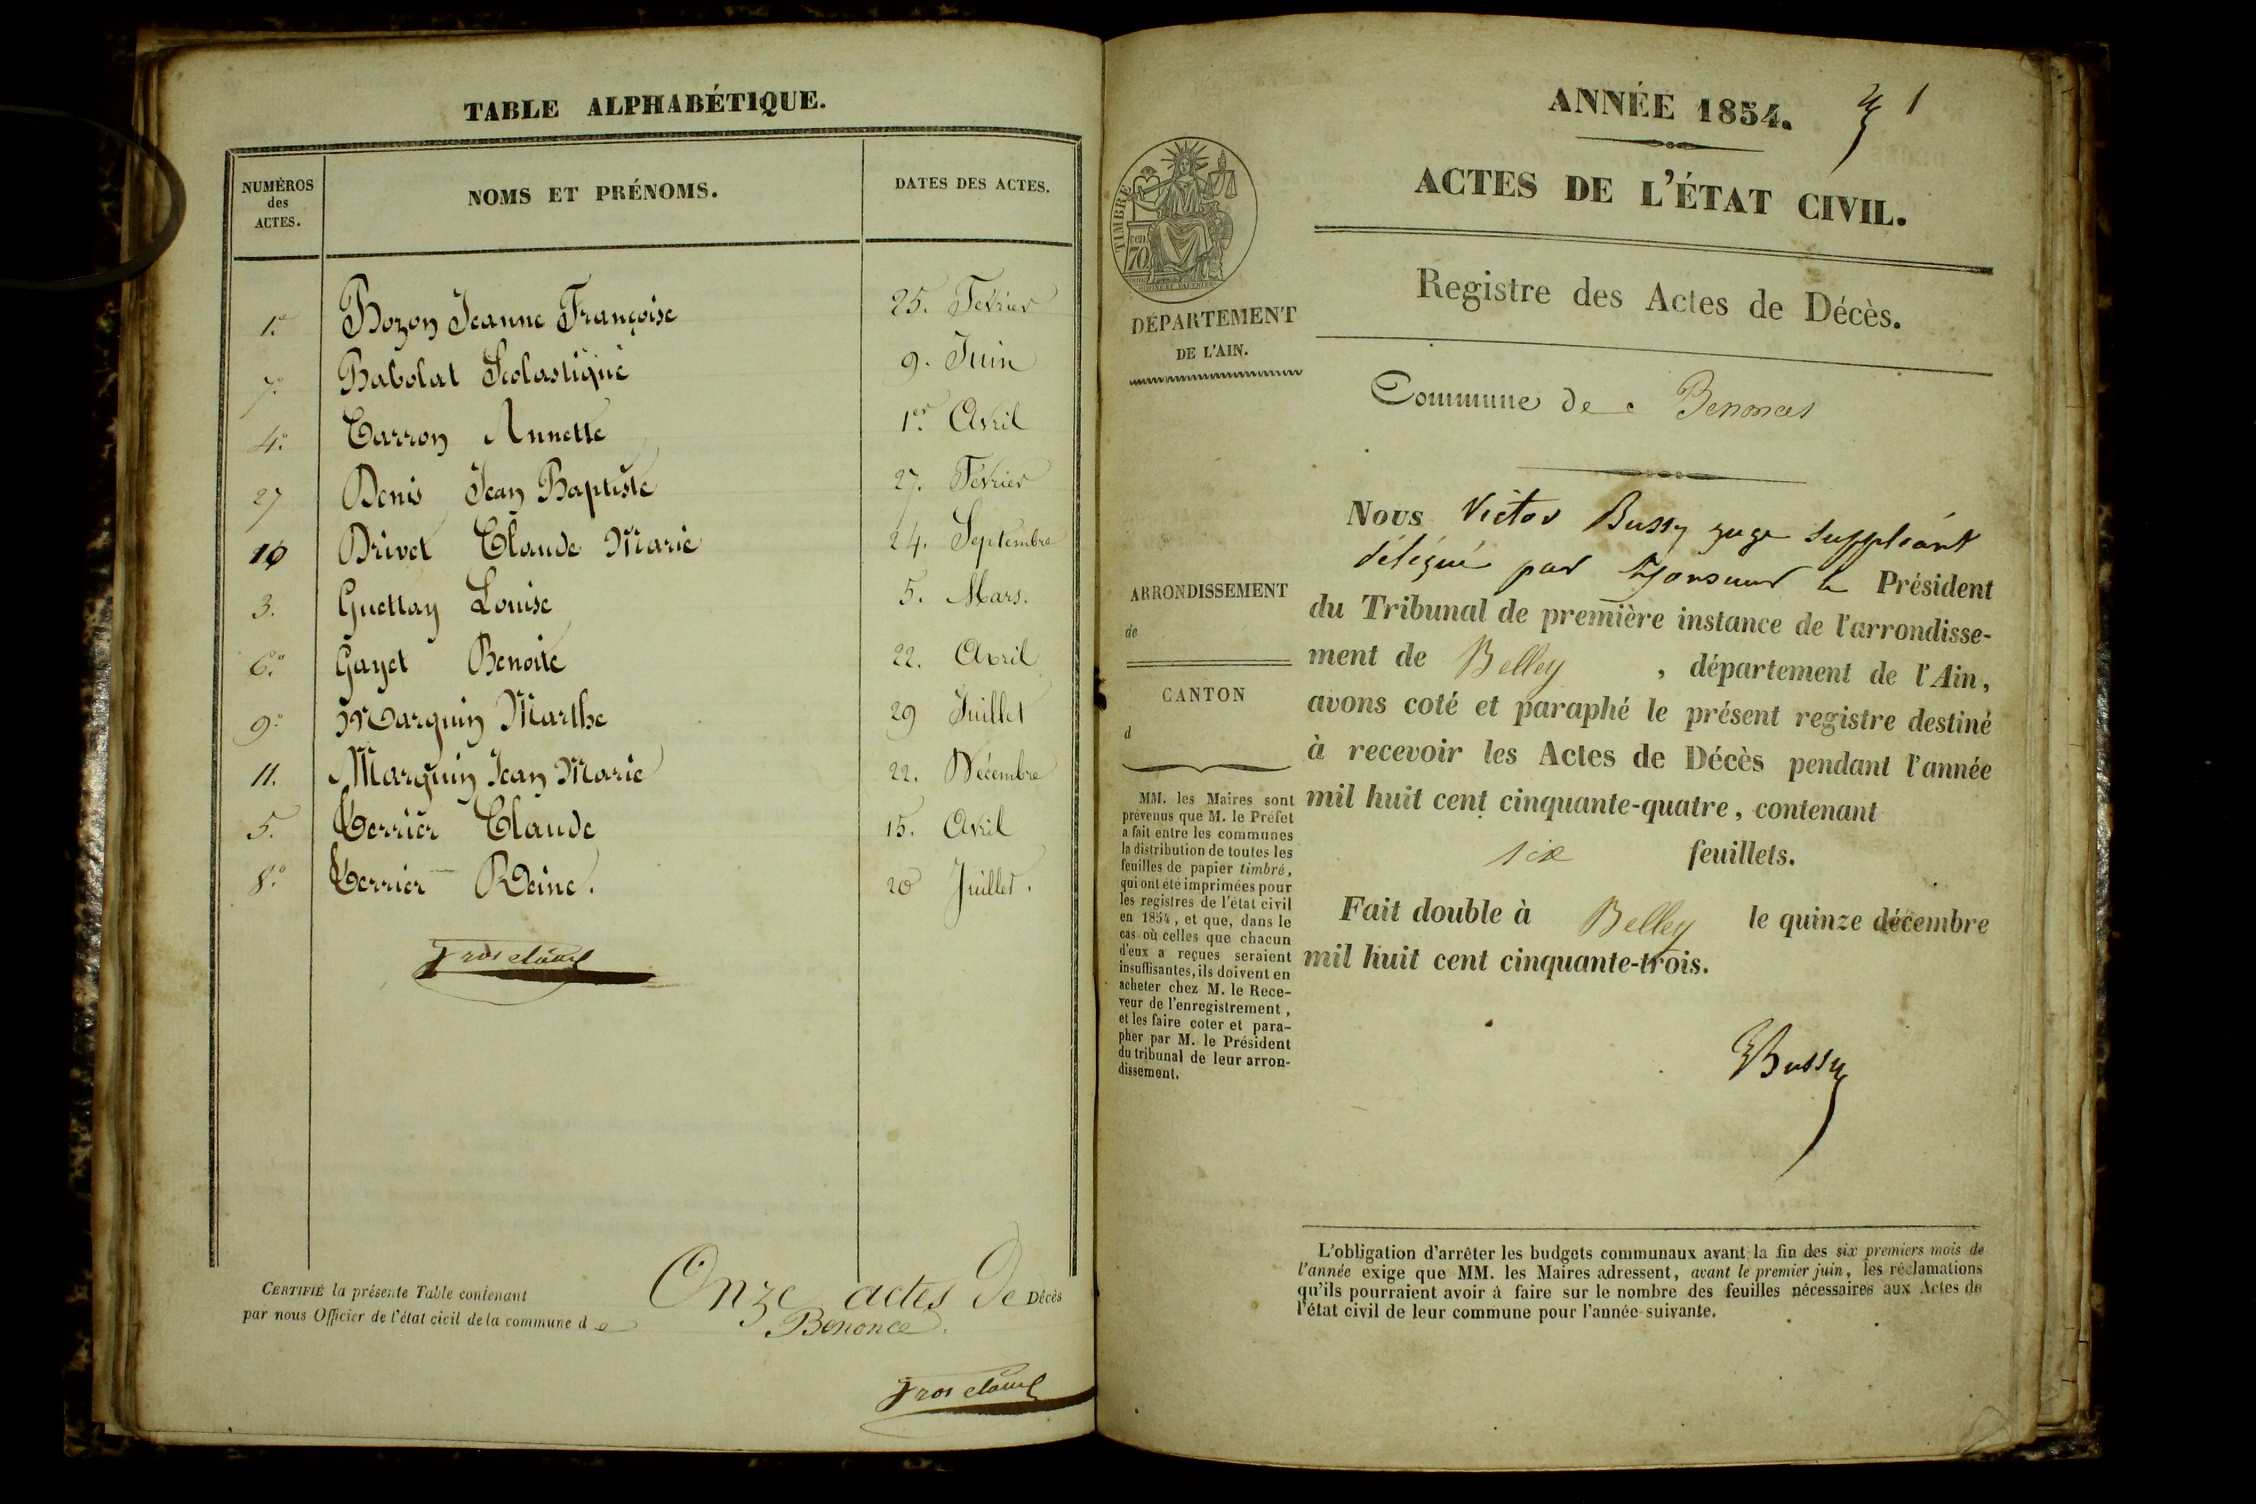 TABLE ALPHABÉTIQUE.
NUMÉROS des ACTES. NOMS ET PRÉNOMS. DATES DES ACTES.
1.º Bozon Jeanne Françoise 25. Février
7.º Babolat Scolastique 9. Juin
4.º Carron Annette 1.er Avril
27 Denis Jean Baptiste 27. Février
10 Drivet Claude Marie 24. Septembre
3. Guettay Louise 5. Mars.
6.º Gayet Benoite 22. Avril
9.º Marquin Marthe 29 Juillet
11. Marquin Jean Marie 22. Décembre
5. Terrier Claude 15. Avril
8.º Terrier Reine. 20 Juillet.
CERTIFIÉ la présente Table contenant Onze actes de Décès
par nous Officier de l'état civil de la commune de Benonce.
ANNÉE 1854. 1
ACTES DE L'ÉTAT CIVIL.
Registre des Actes de Décès.
Commune de Benonces
TIMBRE
70
DÉPARTEMENT
DE L'AIN.
ARRONDISSEMENT
de
CANTON
d
MM. les Maires sont
prévenus que M. le Préfet
a fait entre les communes
la distribution de toutes les
feuilles de papier timbré,
qui ont été imprimées pour
les registres de l'état civil
en 1854, et que, dans le
cas où celles que chacun
d'eux a reçues seraient
insuffisantes, ils doivent en
acheter chez M. le Rece-
veur de l'enregistrement,
et les faire coter et para-
pher par M. le Président
du tribunal de leur arron-
dissement.
Nous Victor Bussy juge suppléant
délégué par Monsieur le Président
du Tribunal de première instance de l'arrondisse-
ment de Belley, département de l'Ain,
avons coté et paraphé le présent registre destiné
à recevoir les Actes de Décès pendant l'année
mil huit cent cinquante-quatre, contenant
six feuillets.
Fait double à Belley le quinze décembre
mil huit cent cinquante-trois.
Bussy
L'obligation d'arrêter les budgets communaux avant la fin des six premiers mois de
l'année exige que MM. les Maires adressent, avant le premier juin, les réclamations
qu'ils pourraient avoir à faire sur le nombre des feuilles nécessaires aux Actes de
l'état civil de leur commune pour l'année suivante.